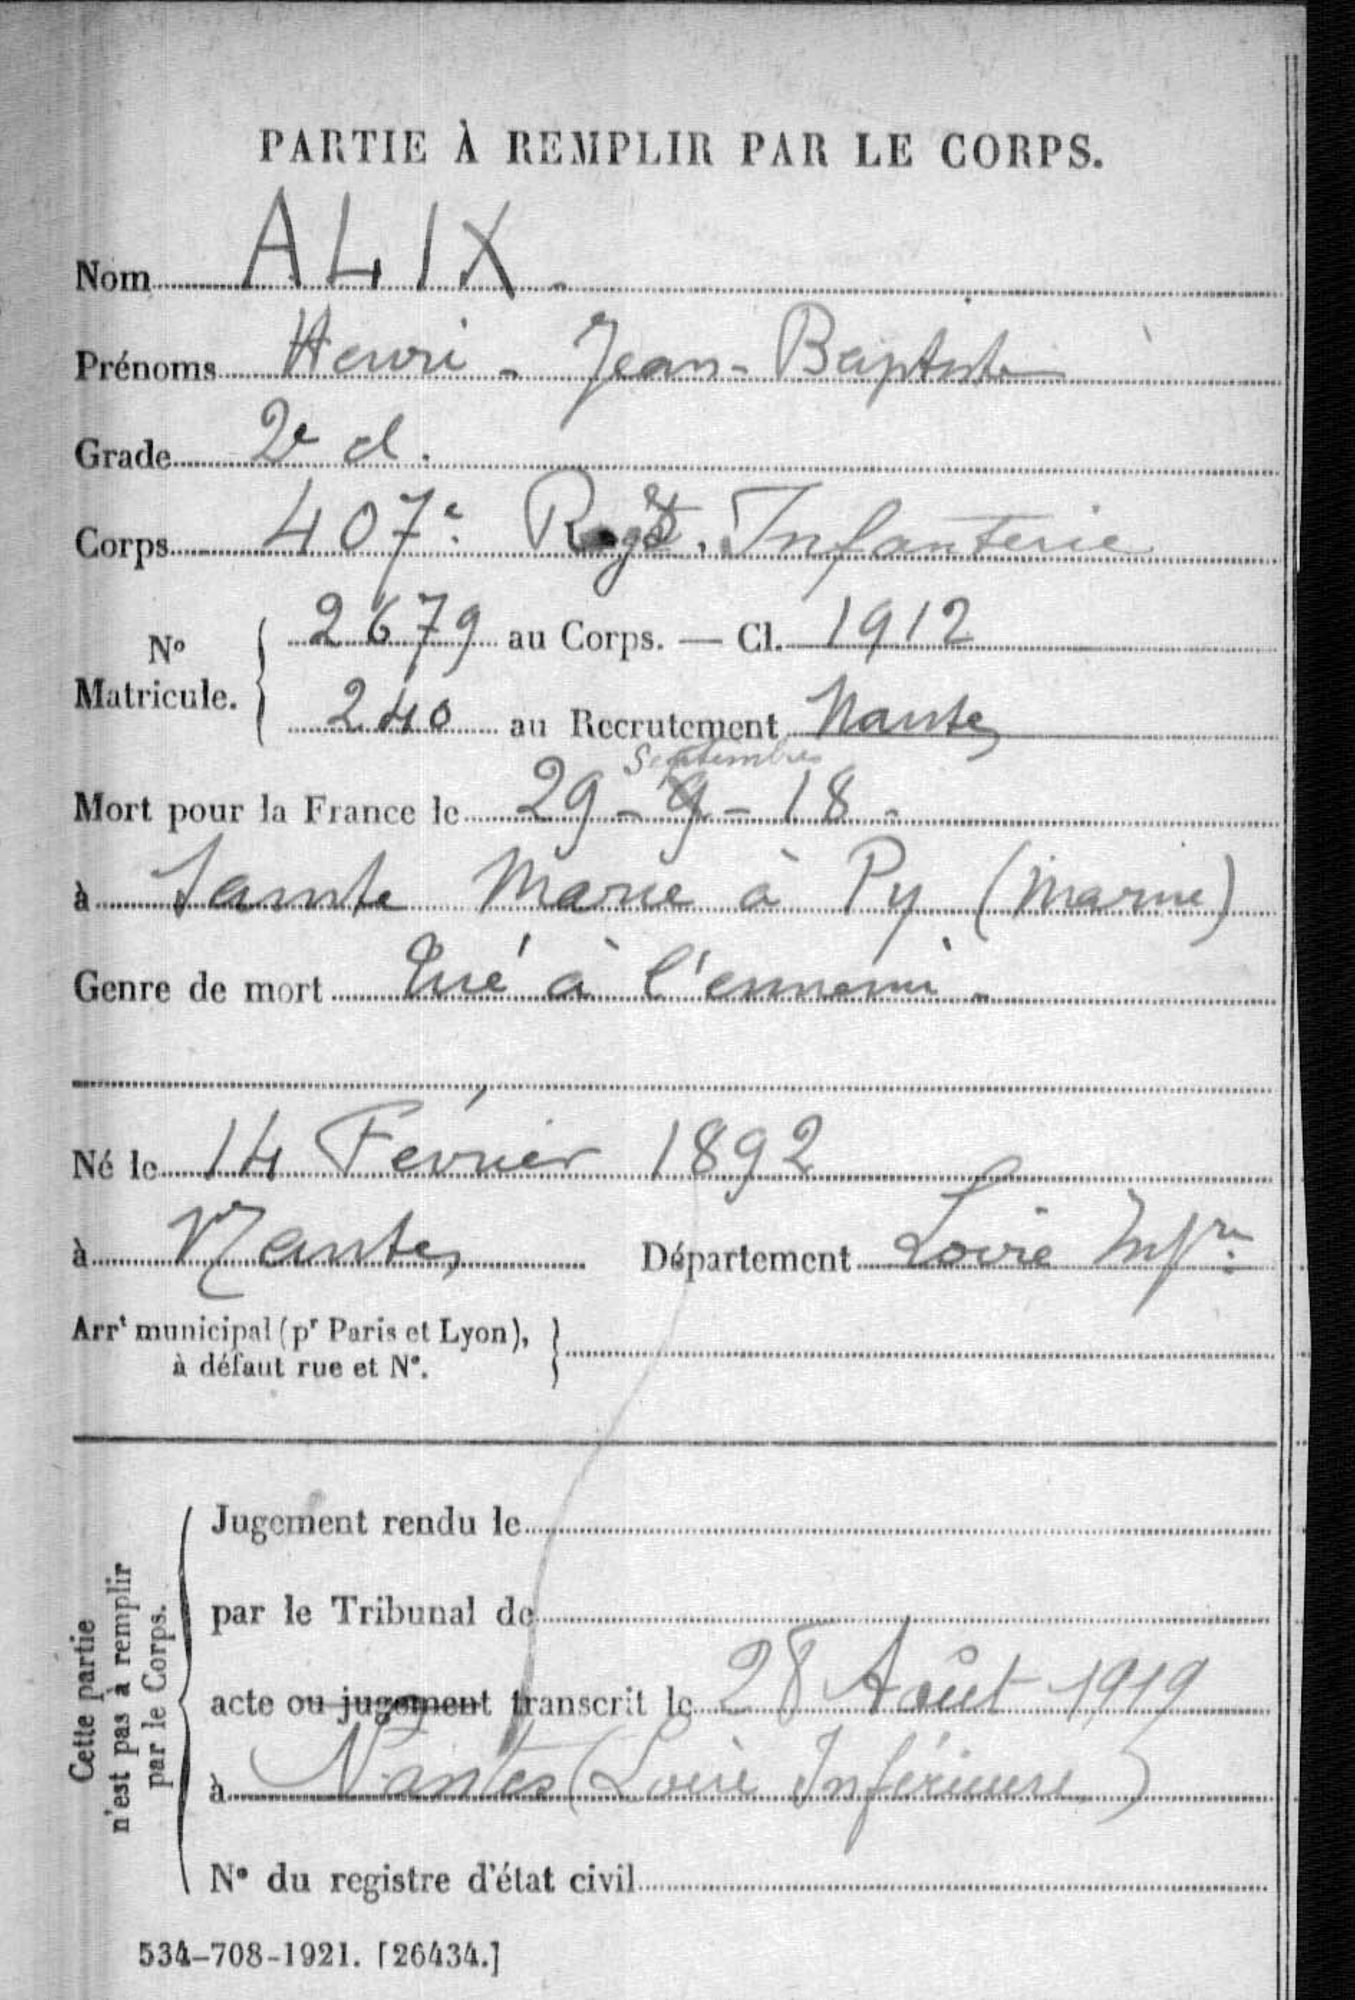 PARTIE À REMPLIR PAR LE CORPS.
Nom ALIX.
Prénoms Henri - Jean - Baptiste
Grade 2e cl.
Corps 407e Regt. Infanterie
No Matricule. 2679 au Corps. — Cl. 1912
240 au Recrutement Nantes
Septembre
Mort pour la France le 29 - 9 - 18 -
à Sainte Marie à Py (Marne)
Genre de mort tué à l'ennemi -
Né le 14 Février 1892
à Nantes Département Loire Infre
Arrt municipal (pr Paris et Lyon),
à défaut rue et N°.
Cette partie
n'est pas à remplir
par le Corps.
Jugement rendu le
par le Tribunal de
acte ou jugement transcrit le 28 Août 1919
à Nantes (Loire Inférieure)
N° du registre d'état civil
534-708-1921. [26434.]